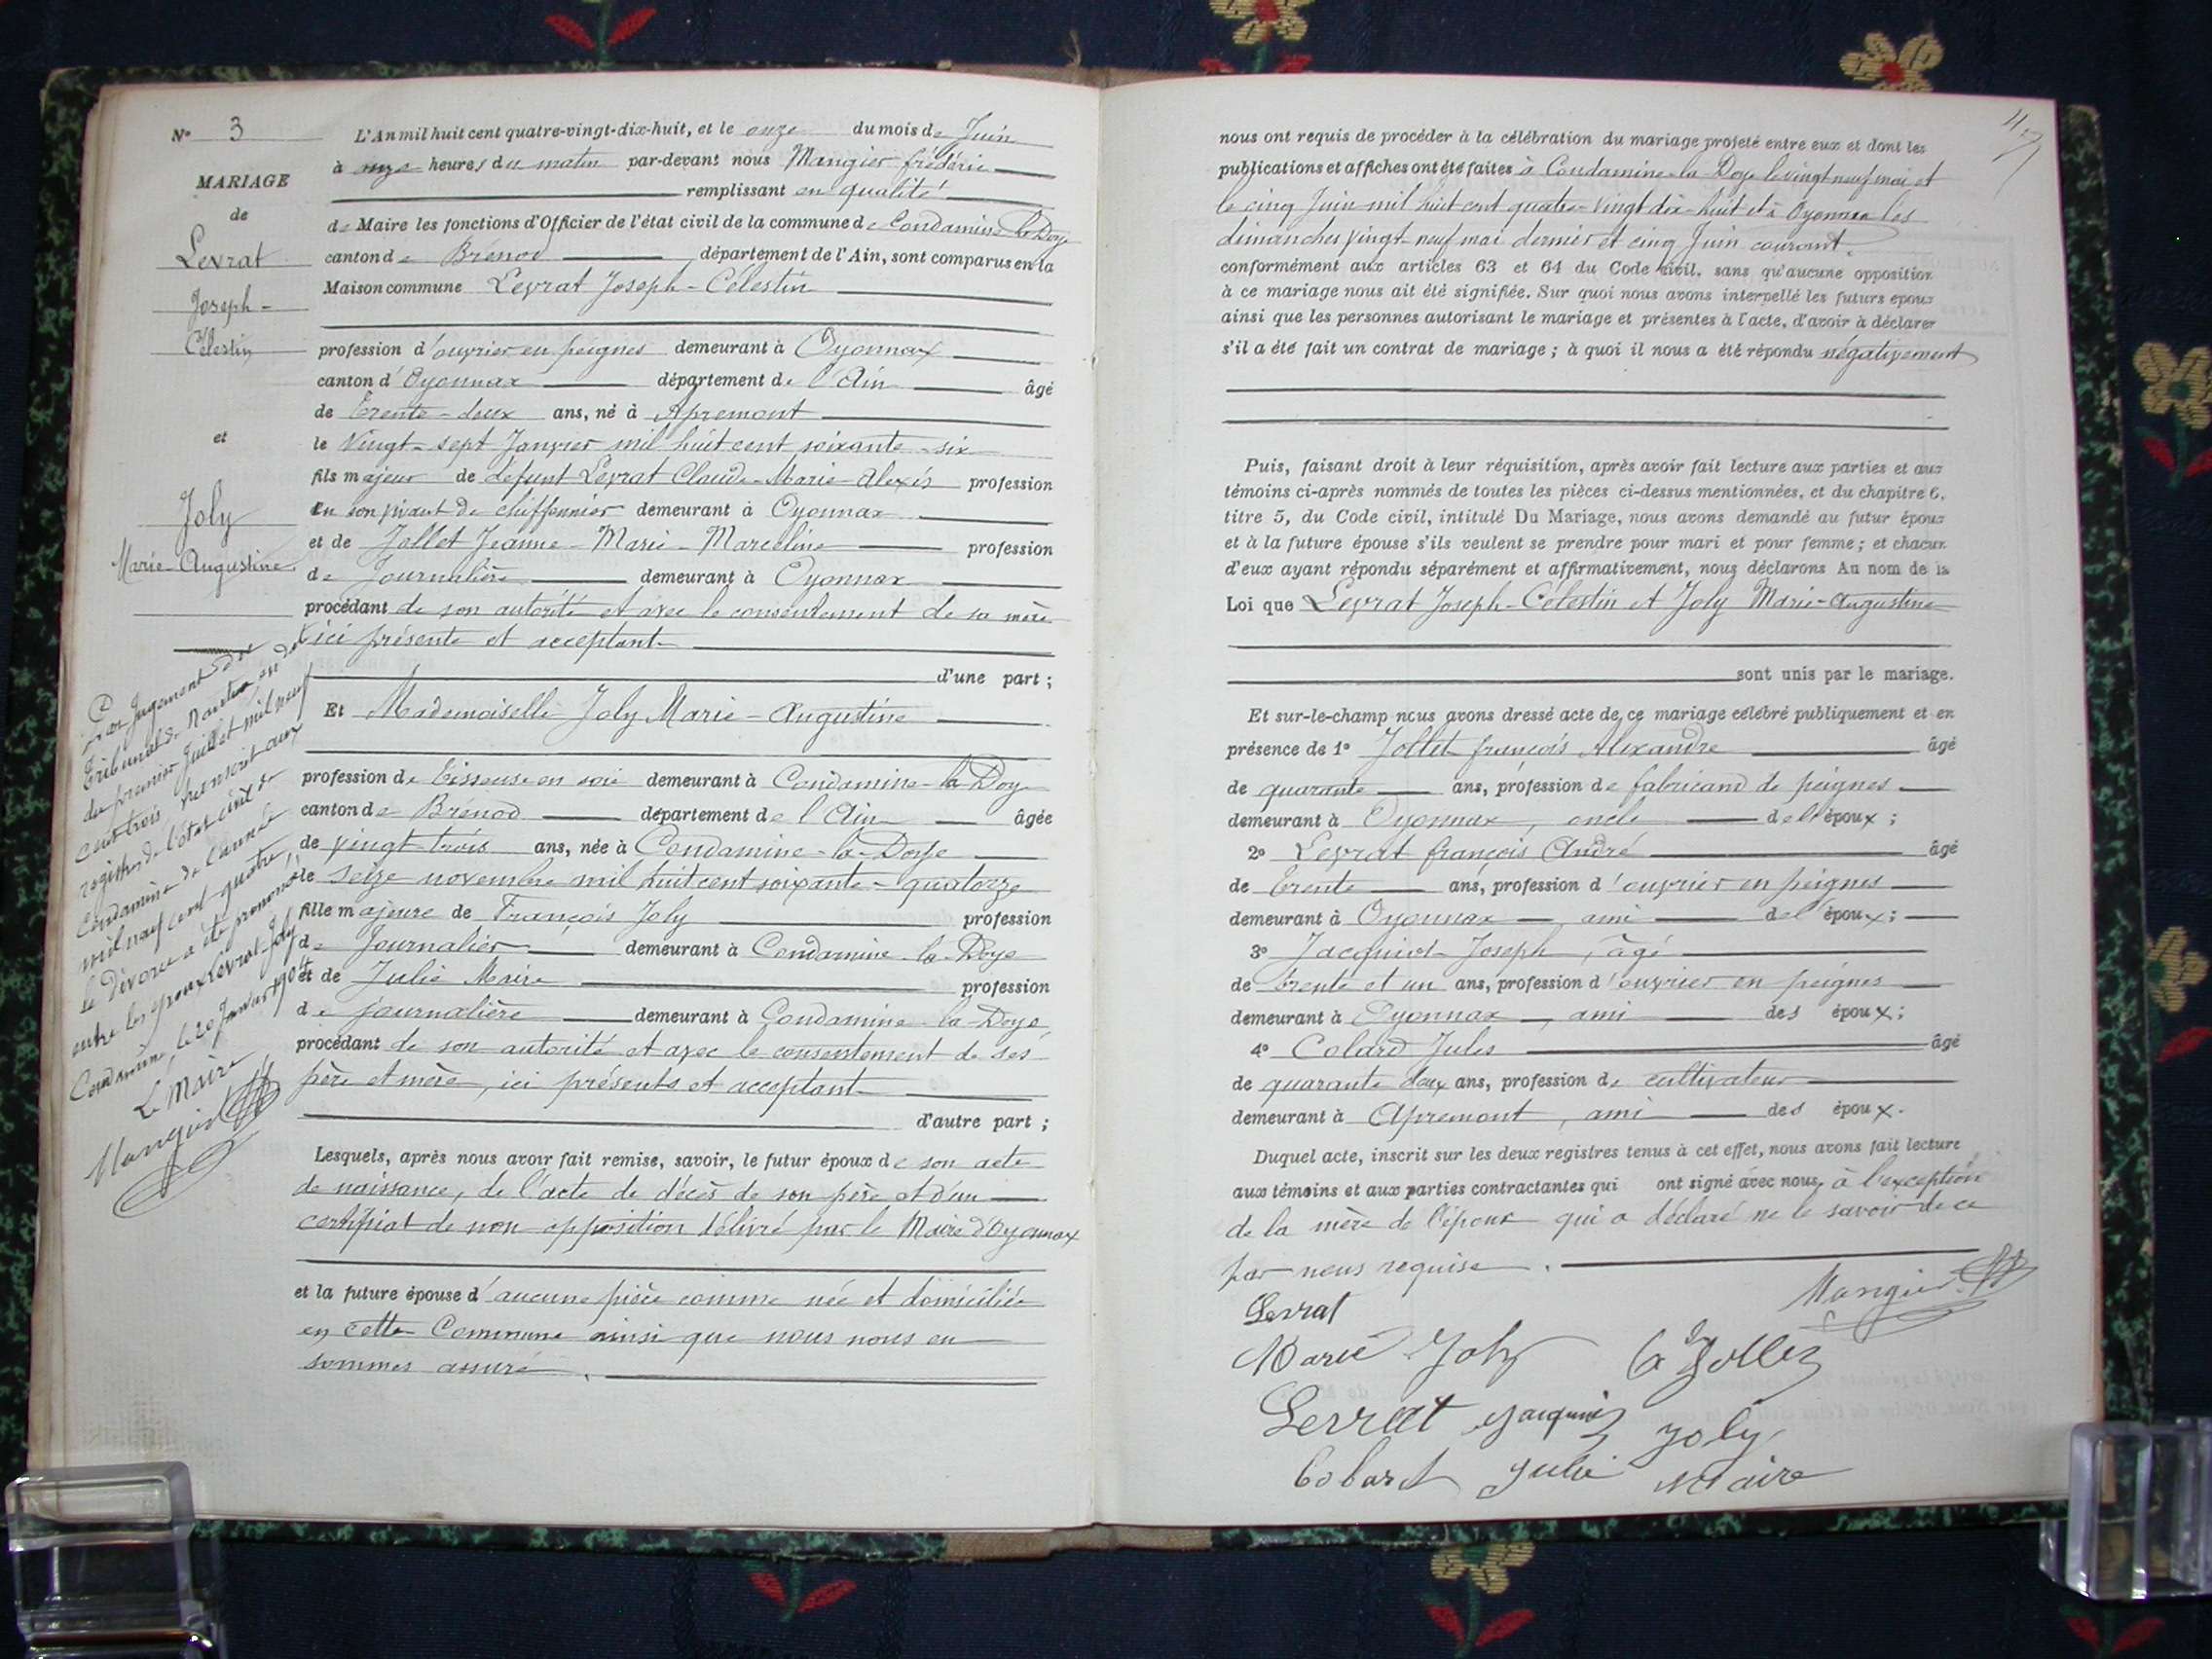 N° 3
MARIAGE
de
Levrat
Joseph-
Célestin
et
Joly
Marie-Augustine
Par jugement du
Tribunal de Nantua en date
du premier Juillet mil neuf
cent trois, transcrit aux
registres de l'état civil de
Condamine de l'année
mil neuf cent quatre,
le Divorce a été prononcé
entre les époux Levrat-Joly
Condamine, le 20 Janvier 1904
Le Maire
Mangier
L'An mil huit cent quatre-vingt-dix-huit, et le onze du mois de Juin
à onze heures du matin par-devant nous Mangier frédéric
remplissant en qualité
de Maire les fonctions d'Officier de l'état civil de la commune de Condamine la Doye
canton de Brénod département de l'Ain, sont comparus en la
Maison commune Levrat Joseph-Célestin
profession d'ouvrier en peignes demeurant à Oyonnax
canton d'Oyonnax département de l'Ain âgé
de trente-deux ans, né à Apremont
le Vingt-sept Janvier mil huit cent soixante-six
fils majeur de défunt Levrat Claude-Marie-Alexis profession
En son vivant de chiffonnier demeurant à Oyonnax
et de Jollet Jeanne-Marie-Marceline profession
de Journalière demeurant à Oyonnax
procédant de son autorité et avec le consentement de sa mère
ici présente et acceptant
d'une part ;
Et Mademoiselle Joly Marie-Augustine
profession de tisseuse en soie demeurant à Condamine-la-Doye
canton de Brénod département de l'Ain âgée
de vingt-trois ans, née à Condamine-la-Doye
le seize novembre mil huit cent soixante-quatorze
fille majeure de François Joly profession
de Journalier demeurant à Condamine-la-Doye
et de Julie Maire profession
de journalière demeurant à Condamine-la-Doye
procédant de son autorité et avec le consentement de ses
père et mère, ici présents et acceptant
d'autre part ;
Lesquels, après nous avoir fait remise, savoir, le futur époux de son acte
de naissance, de l'acte de décès de son père et d'un
certificat de non opposition délivré par le Maire d'Oyonnax
et la future épouse d'aucune pièce comme née et domiciliée
en cette Commune ainsi que nous nous en
sommes assuré.
nous ont requis de procéder à la célébration du mariage projeté entre eux et dont les
publications et affiches ont été faites à Condamine-la-Doye le vingt neuf mai et
le cinq Juin mil huit cent quatre-vingt dix-huit et à Oyonnax les
dimanches vingt-neuf mai dernier et cinq Juin courant.
conformément aux articles 63 et 64 du Code civil, sans qu'aucune opposition
à ce mariage nous ait été signifiée. Sur quoi nous avons interpellé les futurs époux
ainsi que les personnes autorisant le mariage et présentes à l'acte, d'avoir à déclarer
s'il a été fait un contrat de mariage ; à quoi il nous a été répondu négativement
Puis, faisant droit à leur réquisition, après avoir fait lecture aux parties et aux
témoins ci-après nommés de toutes les pièces ci-dessus mentionnées, et du chapitre 6,
titre 5, du Code civil, intitulé Du Mariage, nous avons demandé au futur époux
et à la future épouse s'ils veulent se prendre pour mari et pour femme ; et chacun
d'eux ayant répondu séparément et affirmativement, nous déclarons Au nom de la
Loi que Levrat Joseph-Célestin et Joly Marie-Augustine
sont unis par le mariage.
Et sur-le-champ nous avons dressé acte de ce mariage célébré publiquement et en
présence de 1° Jollet françois Alexandre âgé
de quarante ans, profession de fabricant de peignes
demeurant à Oyonnax, oncle de l'époux ;
2° Levrat françois André âgé
de trente ans, profession d'ouvrier en peignes
demeurant à Oyonnax, ami de l'époux ;
3° Jacquiot Joseph, âgé
de trente et un ans, profession d'ouvrier en peignes
demeurant à Oyonnax, ami des époux ;
4° Colard Jules âgé
de quarante deux ans, profession de cultivateur
demeurant à Apremont, ami des époux.
Duquel acte, inscrit sur les deux registres tenus à cet effet, nous avons fait lecture
aux témoins et aux parties contractantes qui ont signé avec nous, à l'exception
de la mère de l'époux qui a déclaré ne le savoir de ce
par nous requise.
Levrat
Mangier
Marie Joly
Jollet
Levrat
Joly
Julie Maire